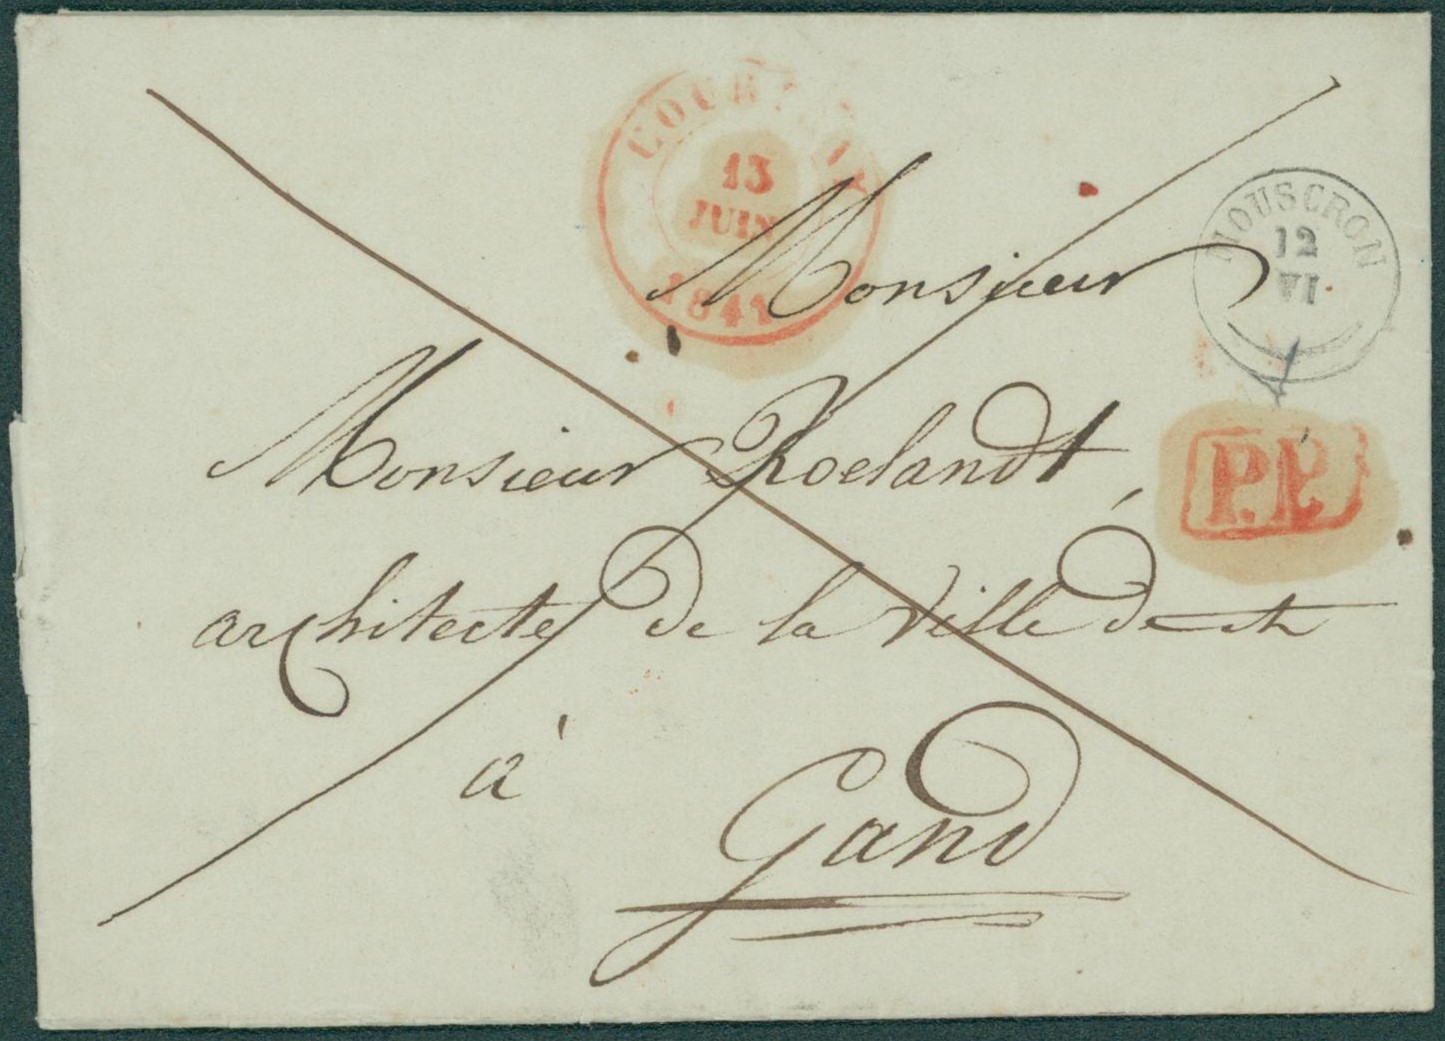 COURTRAI
13
JUIN
1841
MOUSCRON
12
VI
Monsieur
P.P.
Monsieur Roelandt,
architecte de la Ville de
à
Gand